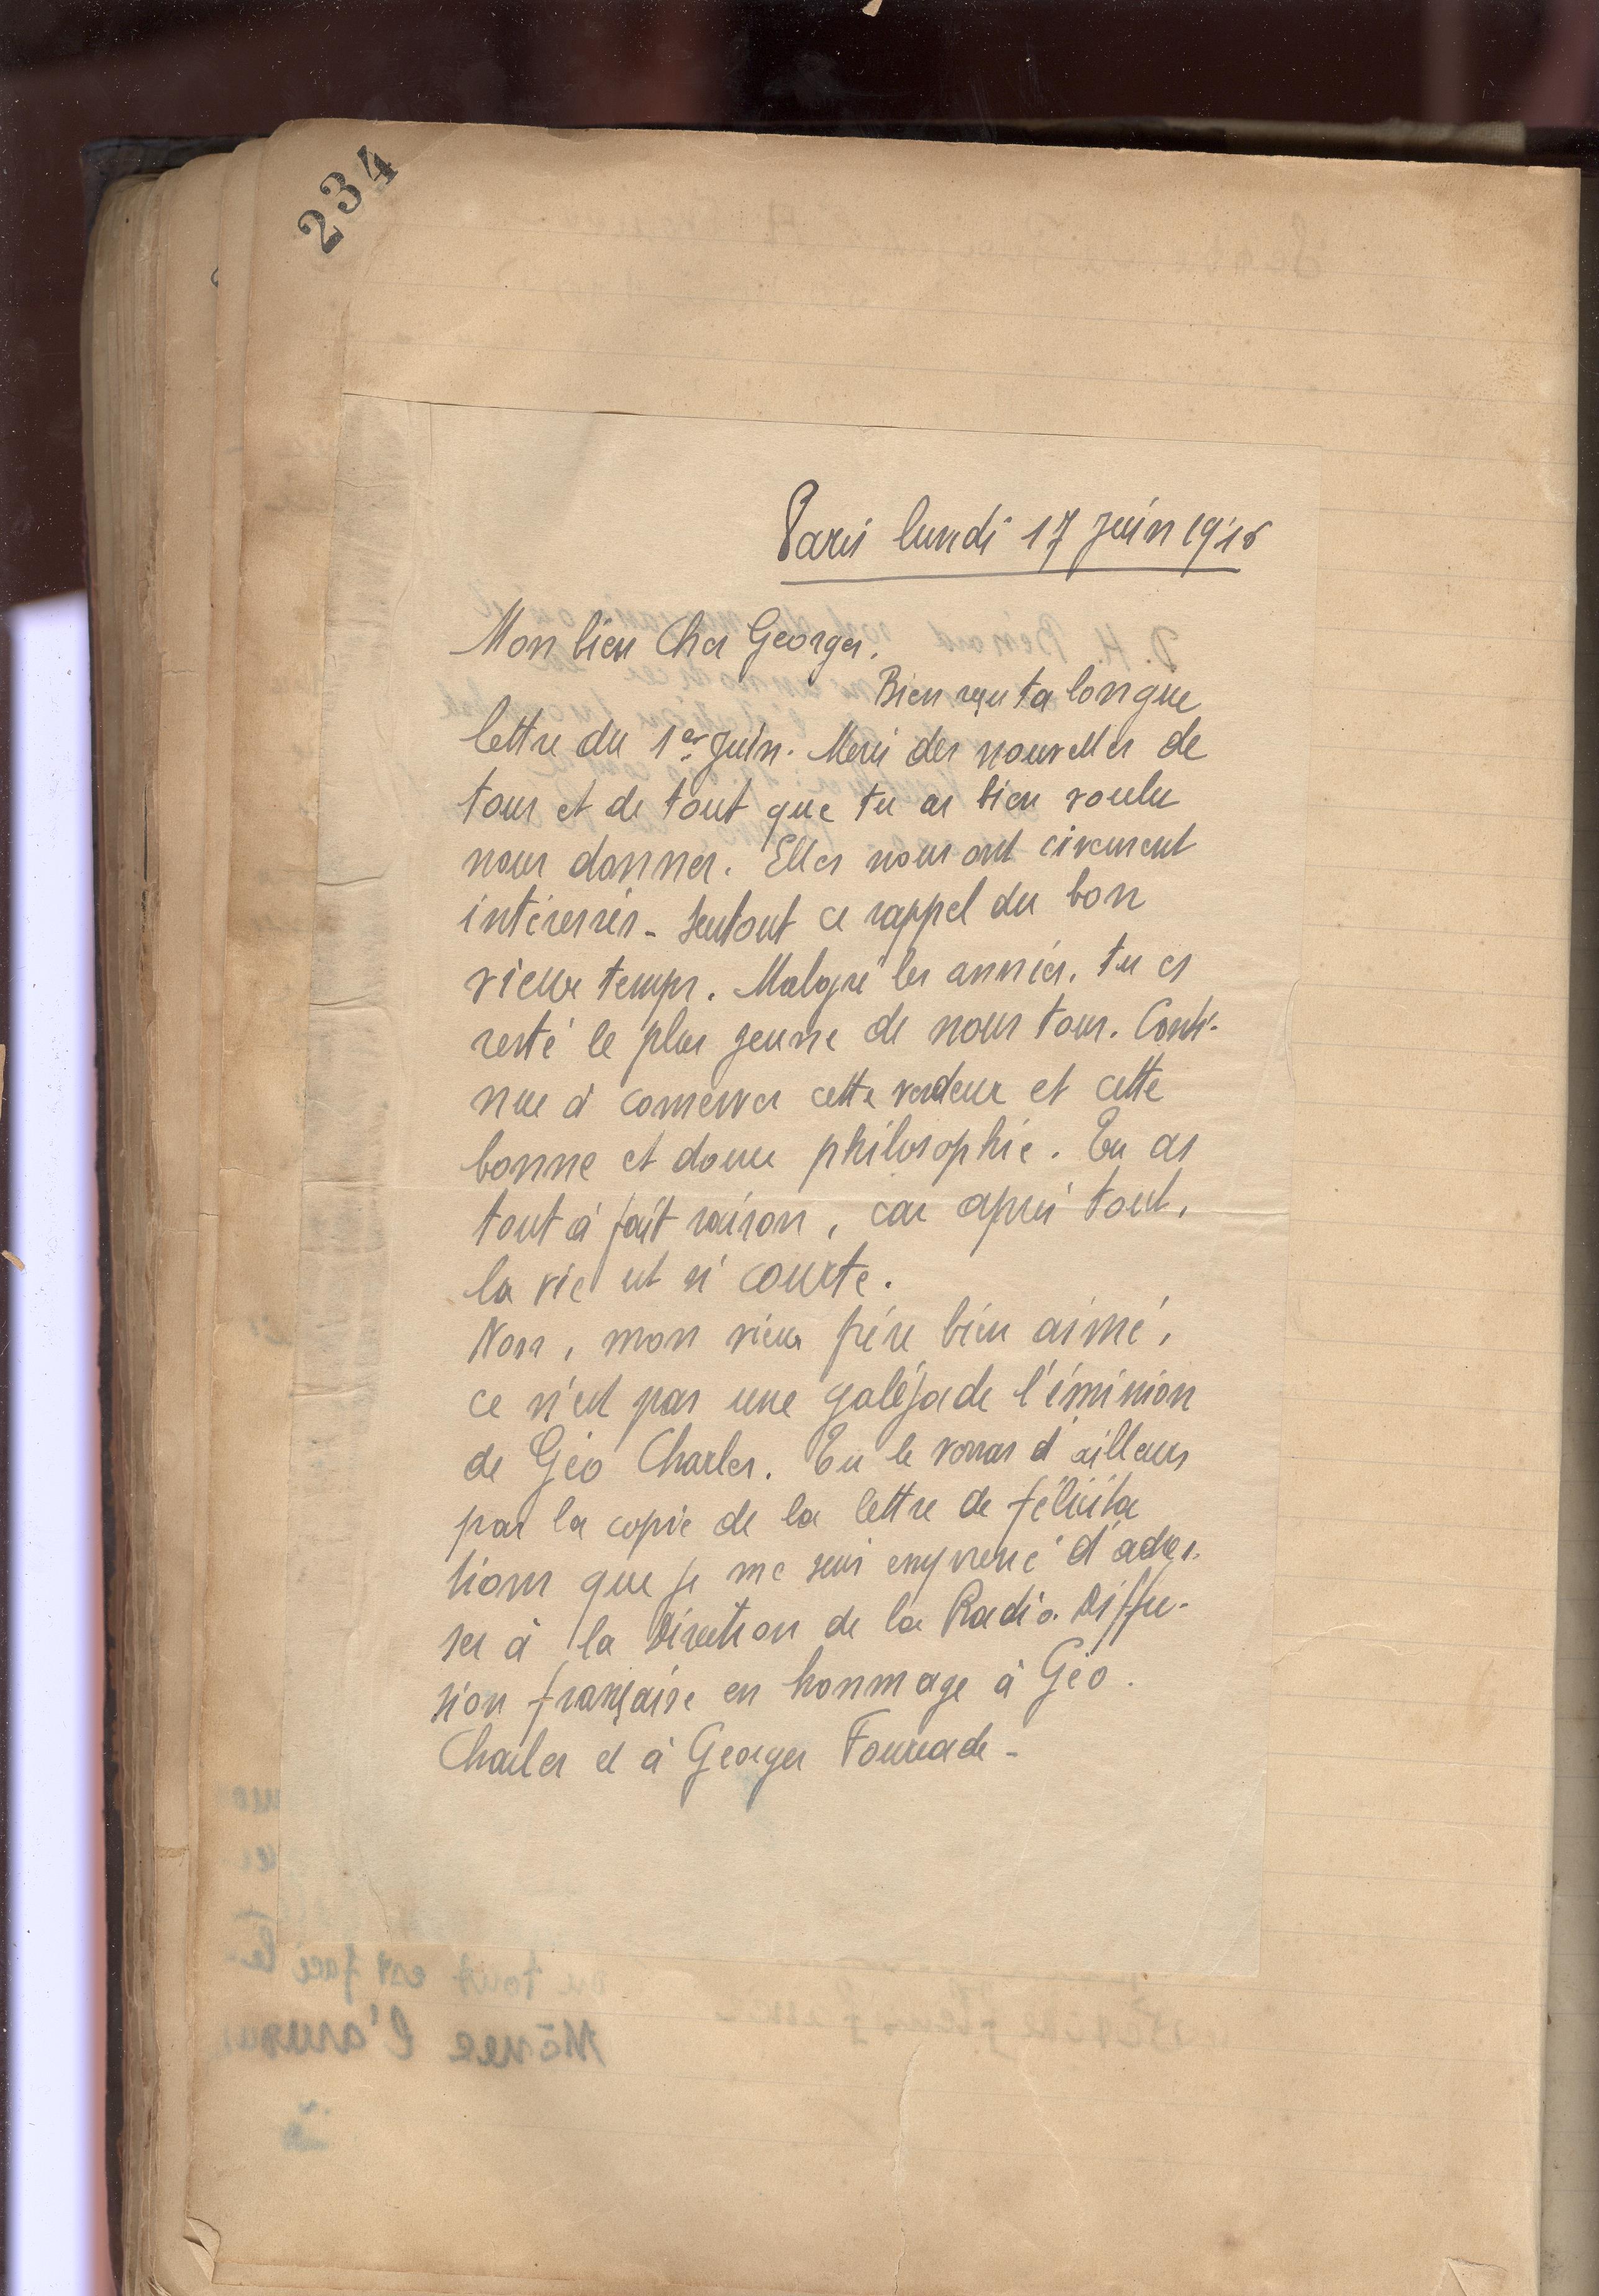 234
Paris lundi 17 juin 1946
Mon bien cher Georges.
Bien reçu ta longue
lettre du 1er juin. Merci des nouvelles de
tous et de tout que tu as bien voulu
nous donner. Elles nous ont vivement
intéressés - surtout ce rappel du bon
vieux temps. Malgré les années, tu es
resté le plus jeune de nous tous. Conti-
nue à conserver cette verdeur et cette
bonne et douce philosophie. Tu as
tout à fait raison, car après tout,
la vie est si courte.
Non, mon vieux frère bien aimé,
ce n'est pas une galéjade l'émission
de Géo Charles. Tu le verras d'ailleurs
par la copie de la lettre de félicita
tions que je me suis empressé d'adres-
ser à la Direction de la Radio. Diffu-
sion française en hommage à Géo.
Charles et à Georges Fourcade -